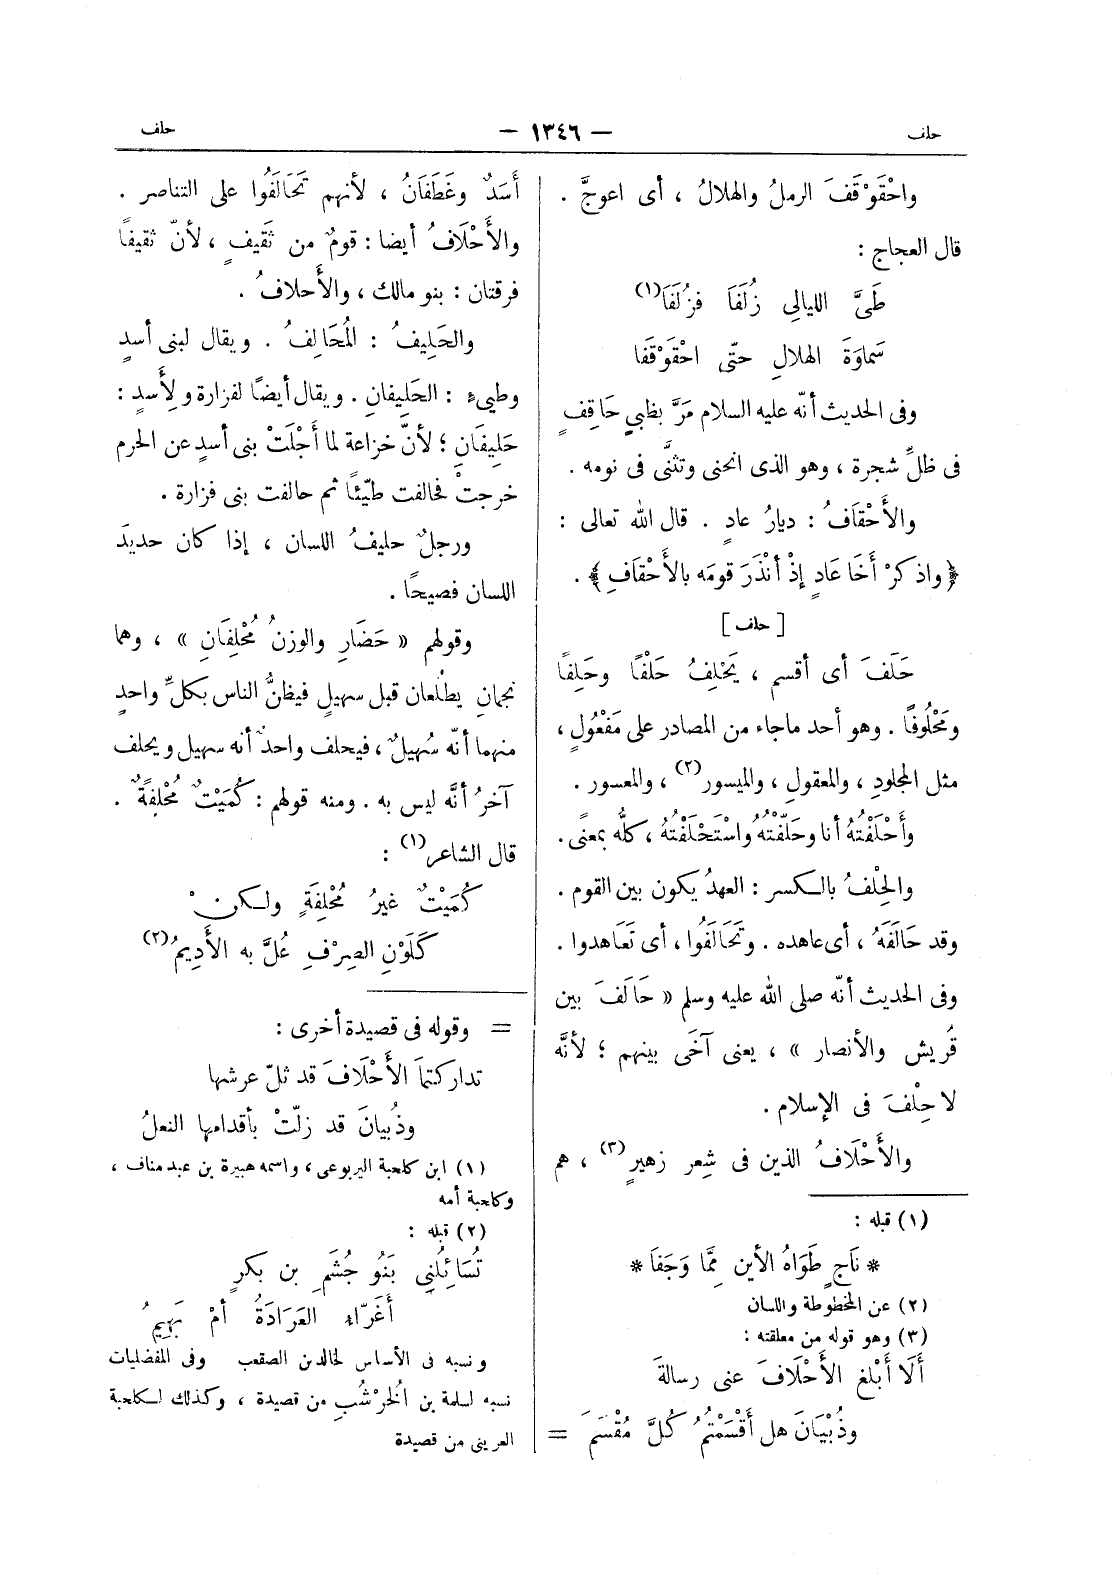 حلف — ١٣٤٦ — حلف
واحْقَوْقَفَ الرملُ والهلالُ ، أى اعوجَّ .
قال العجاج :
طَىَّ الليالِى زُلَفَا فزُلَفَا(١)
سَماوَةَ الهلالِ حتّى احْقَوْقَفا
وفى الحديث أنّه عليه السلام مَرَّ بظبيٍ حَاقِفٍ
فى ظلِّ شجرة ، وهو الذى انحنى وتثنَّى فى نومه .
والأَحْقَافُ : ديارُ عادٍ . قال الله تعالى :
﴿ واذكرْ أَخَا عَادٍ إذْ أَنْذَرَ قومَه بالأَحْقَافِ ﴾ .
[ حلف ]
حَلَفَ أى أقسم ، يَحْلِفُ حَلْفًا وحَلِفًا
ومَحْلُوفًا . وهو أحد ماجاء من المصادر على مَفْعُولٍ ،
مثل المجلودِ ، والمعقولِ ، والميسور(٢) ، والمعسور .
وأَحْلَفْتُهُ أنا وحَلَّفْتُهُ واسْتَحْلَفْتُهُ ، كلُّه بمعنًى .
والحِلْفُ بالكسر : العهدُ يكون بين القوم .
وقد حَالَفَهُ ، أى عاهده . وتَحَالَفُوا ، أى تَعَاهدوا .
وفى الحديث أنّه صلى الله عليه وسلم « حَالَفَ بين
قُريش والأنصار » ، يعنى آخَى بينهم ؛ لأنَّه
لا حِلْفَ فى الإسلام .
والأَحْلَافُ الذين فى شِعر زهيرٍ(٣) ، هم
(١) قبله :
* نَاجٍ طَوَاهُ الأين مِمَّا وَجَفَا *
(٢) عن المخطوطة واللسان
(٣) وهو قوله من معلقته :
أَلَا أَبْلغ الأَحْلَافَ عنى رسالةَ
وذُبْيَانَ هل أَقْسَمْتُمُ كُلَّ مُقْسَمَ =
أَسَدٌ وغَطَفَانُ ، لأنهم تَحَالَفُوا على التناصر .
والأَحْلَافُ أيضا : قومٌ من ثَقِيفٍ ، لأنّ ثقيفًا
فرقتان : بنو مالك ، والأَحلافُ .
والحَلِيفُ : المُحَالِفُ . ويقال لبنى أسدٍ
وطيىءٍ : الحَلِيفانِ . ويقال أيضًا لفزارة ولِأَسدٍ :
حَلِيفَانِ ؛ لأنَّ خزاعة لما أَجْلَتْ بنى أسدٍ عن الحرم
خرجتْ فحالفت طيّئًا ثم حالفت بنى فزارة .
ورجلٌ حليفُ اللسان ، إذا كان حديدَ
اللسان فصيحًا .
وقولهم « حَضَارِ والوزنُ مُحْلِفَانِ » ، وهما
نجمانِ يطلُعان قبل سهيلٍ فيظنُّ الناس بكلِّ واحدٍ
منهما أنّه سُهيلٌ ، فيحلف واحدٌ أنه سهيل ويحلف
آخرُ أنَّه ليس به . ومنه قولهم : كُمَيْتٌ مُحْلِفَةٌ .
قال الشاعر(١) :
كُمَيْتٌ غيرُ مُحْلِفَةٍ ولكنْ
كَلَوْنِ الصِرْفِ عُلَّ به الأَدِيمُ(٢)
= وقوله فى قصيدة أخرى :
تداركتما الأَحْلَافَ قد ثلّ عرشها
وذُبيانَ قد زلّتْ بأقدامها النعلُ
(١) ابن كلحبة اليربوعى ، واسمه هبيرة بن عبد مناف ،
وكلحبة أمه
(٢) قبله :
تُسَائِلُنِى بَنُو جُشَمِ بن بكرٍ
أَغَرَّاء العَرَادَةُ أمْ بَهِيمُ
ونسبه فى الأساس لخالد بن الصقعب وفى المفضليات
نسبه لسلمة بن الخُرْشُبِ من قصيدة ، وكذلك لكلحبة
العرينى من قصيدة